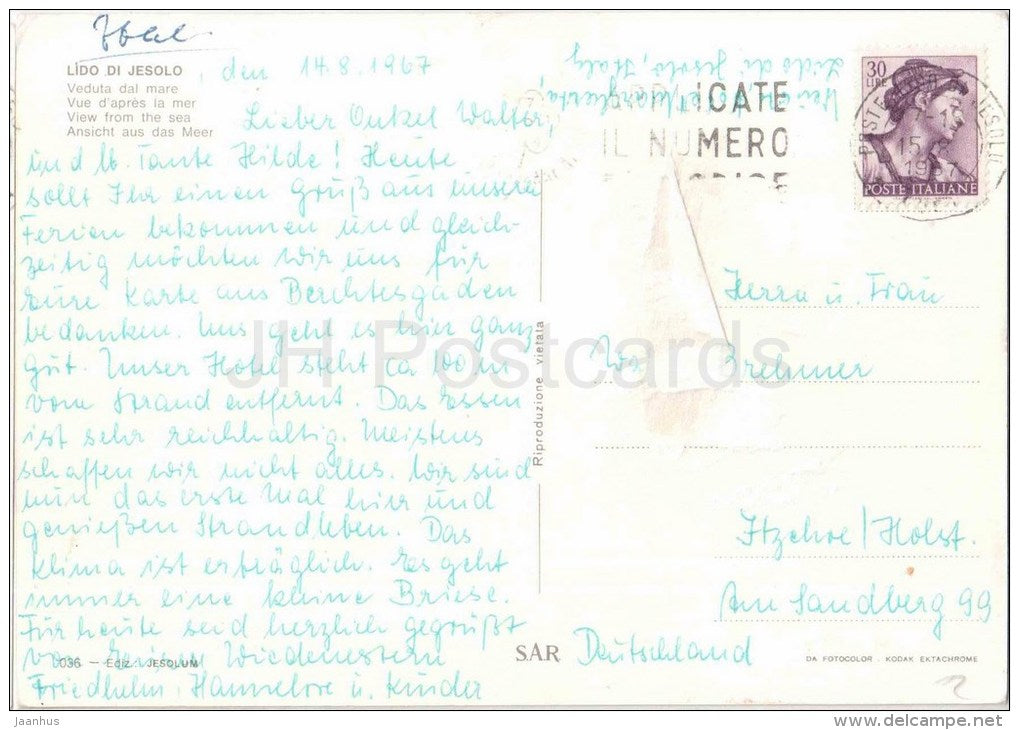 LIDO DI JESOLO, den 14.8.1967
Veduta dal mare
Vue d'après la mer
View from the sea
Ansicht aus das Meer
Lieber Onkel Walter,
und lb. Tante Hilde! Heute
sollt Ihr einen Gruß aus unseren
Ferien bekommen und gleich-
zeitig möchten wir uns für
Eure Karte aus Berchtesgaden
bedanken. Uns geht es hier ganz
gut. Unser Hotel steht ca 100 m
vom Strand entfernt. Das Essen
ist sehr reichhaltig. Meistens
schaffen wir nicht alles. Wir sind
nun das erste Mal hier und
genießen Strandleben. Das
Klima ist erträglich. Es geht
immer eine kleine Briese.
Für heute seid herzlich gegrüßt
von
Friedhelm, Hannelore u. Kinder
036 - Ediz. JESOLUM
Riproduzione vietata
Lido di Jesolo, Italy
ICATE
IL NUMERO
30
LIRE
POSTE ITALIANE
Herrn u. Frau
Brehmer
Itzehoe/Holst.
Am Sandberg 99
Deutschland
SAR
DA FOTOCOLOR - KODAK EKTACHROME
2
JH Postcards
jaanhus
www.delcampe.net